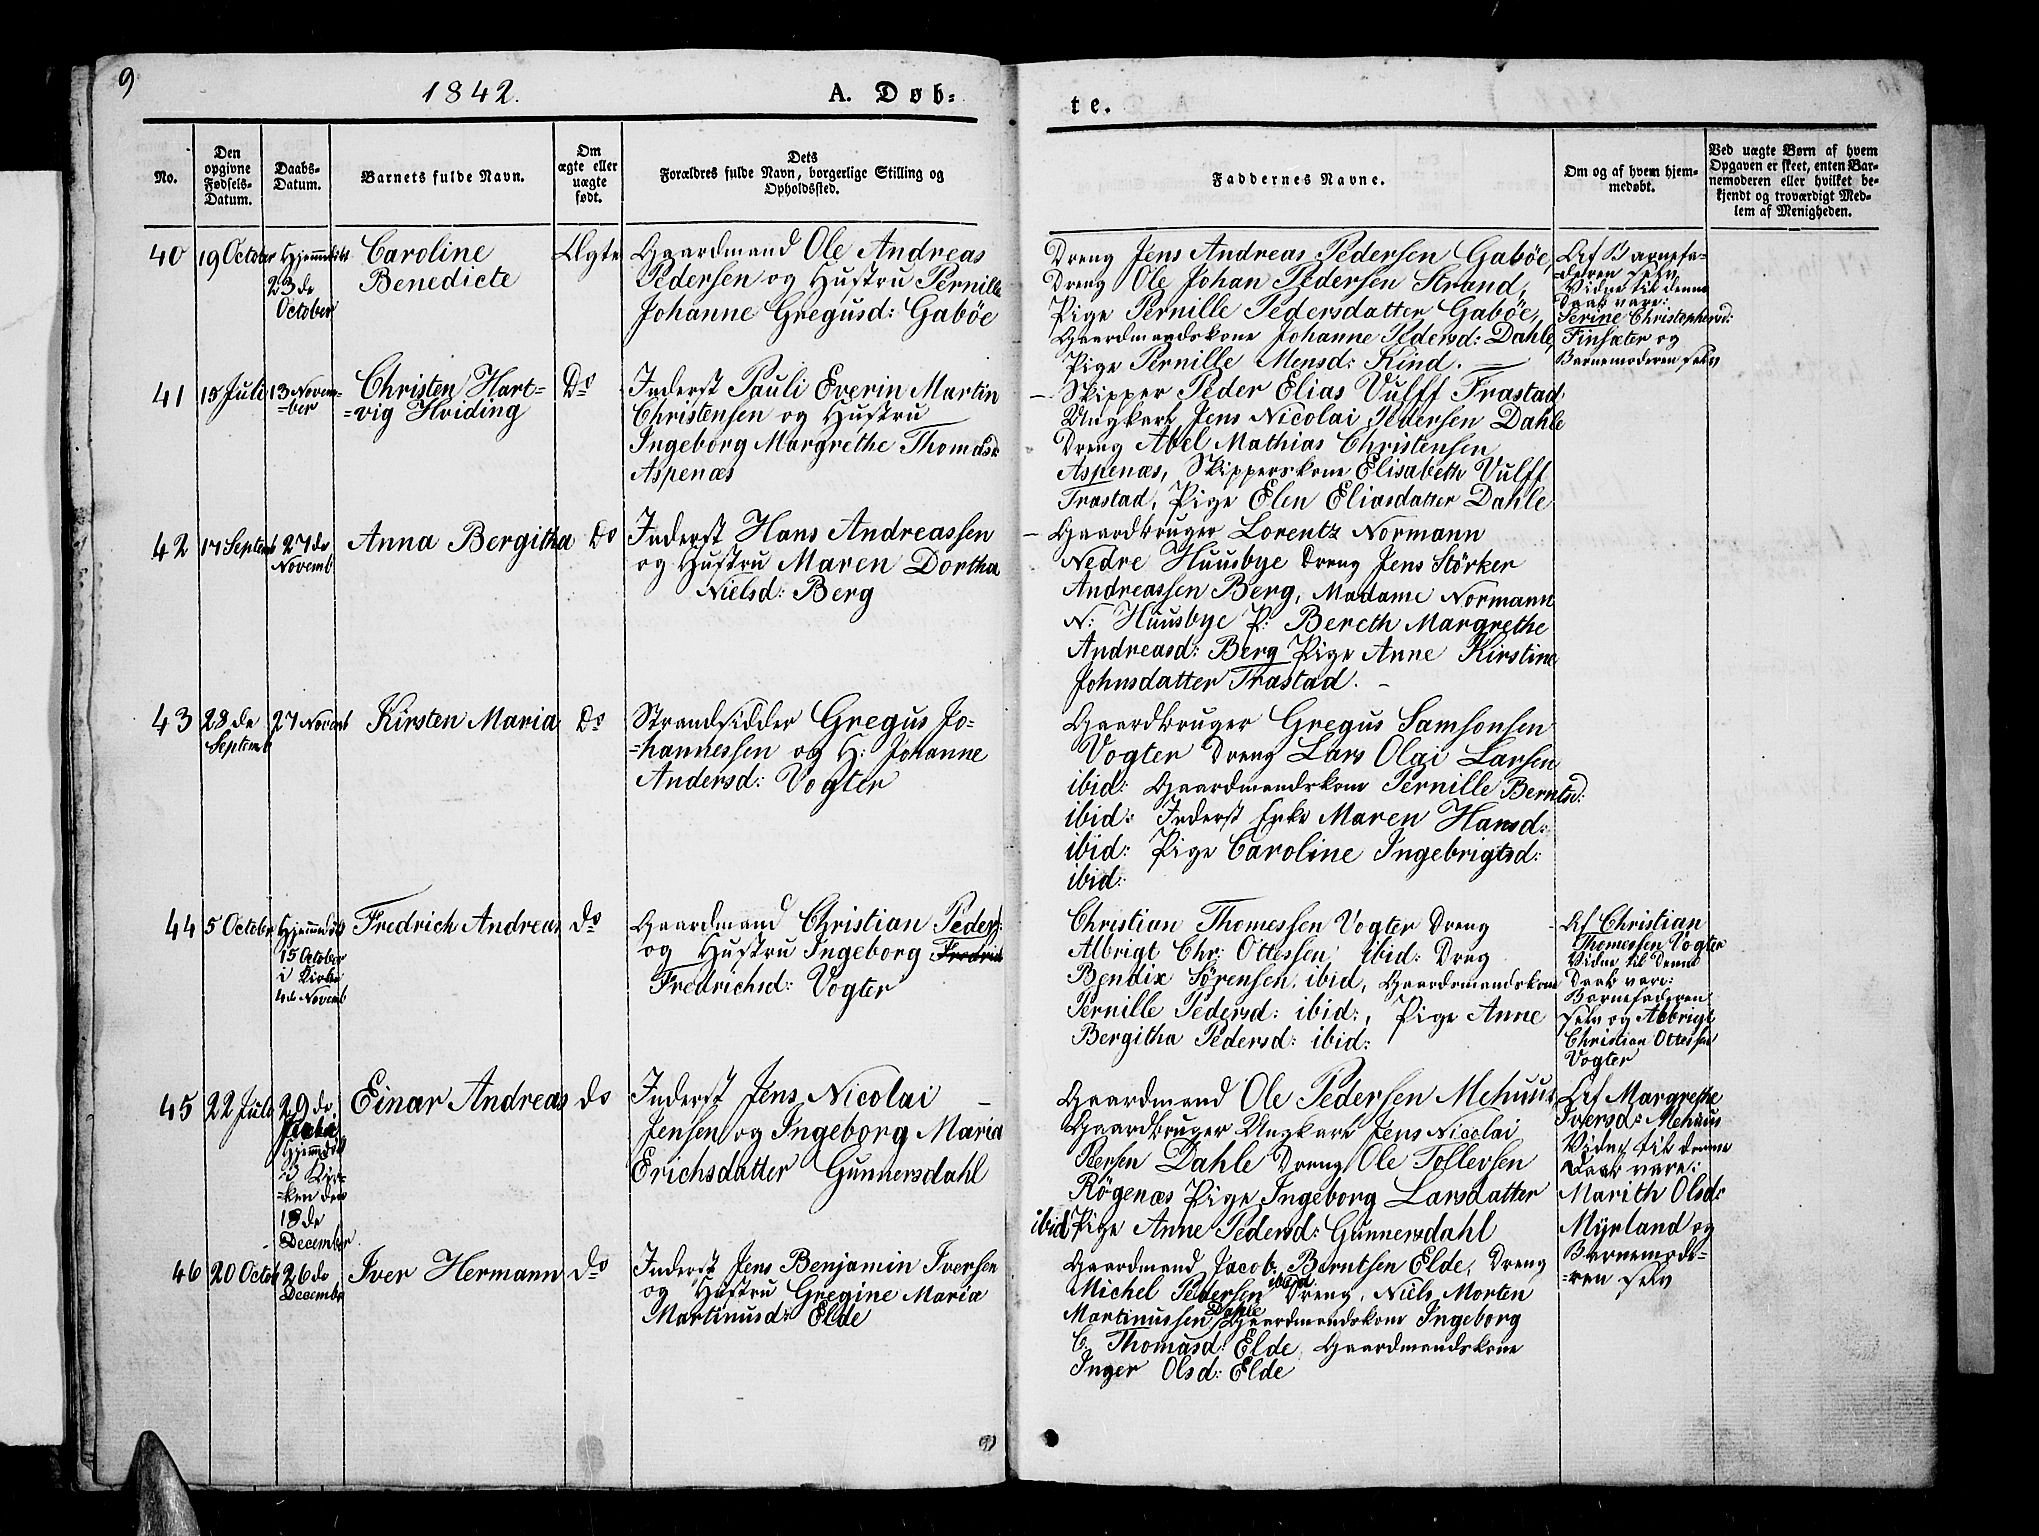 9
1842.
A. Døb=
te.
No.
Den opgivne Fødsels-Datum.
Daabs-Datum.
Barnets fulde Navn.
Om ægte eller uægte født.
Dets Forældres fulde Navn, borgerlige Stilling og Opholdssted.
Faddernes Navne.
Om og af hvem hjem-medøbt.
Ved uægte Børn af hvem Opgaven er skeet, enten Bar-nemoderen eller hvilket be-kjendt og troværdigt Med-lem af Menigheden.
40
19 October
Hjemmedøbt
23de
October
Caroline
Benedicte
Ægte
Gaardmand Ole Andreas
Pedersen og Hustru Pernille
Johanne Gregusd: Gabøe
Dreng Jens Andreas Pedersen Gabøe,
Dreng Ole Johan Pedersen Strand,
Pige Pernille Pedersdatter Gabøe,
Gaardmandskone Johanne Pedersd: Dahle,
Pige Pernille Mensd: Kind.
Af Barnefa-
deren selv
Vidne til denne
Daab vare:
Serine Christophersd:
Finsæter og
Barnemoderen selv
41
15 Juli
13 Novem-
ber
Christen Hart=
=vig Hviding
Do
Inderst Pauli Everin Martin
Christensen og Hustru
Ingeborg Margrethe Thomasd:
Aspenæs
- Skipper Peder Elias Vulff Trastad,
Ungkarl Jens Nicolai Pedersen Dahle
Dreng Abel Mathias Christensen
Aspenæs, Skipperskone Elisabeth Vulff
Trastad, Pige Elen Eliasdatter Dahle
42
17 Septemb
27de
Novemb
Anna Bergitha
Do
Inderst Hans Andreassen
og Hustru Maren Dortha
Nielsd: Berg
- Gaardbruger Lorentz Normann
Nedre Huusbye Dreng Jens Störker
Andreassen Berg, Madame Normann
N: Huusbye P: Bereth Margrethe
Andreasd: Berg Pige Anne Kirstine
Johnsdatter Trastad. -
43
28de
Septemb
27 Novemb
Kirsten Maria
Do
Strandsidder Gregus Jo=
=hannessen og H: Johanne
Andersd: Vogter
Gaardbruger Gregus Samsonsen
Vogter Dreng Lars Olai Larsen
ibid: Gaardmandskone Pernille Berntsd:
ibid: Inderst Enke Maren Hansd:
ibid: Pige Caroline Ingebrigtsd:
ibid:
44
5 Octobr
Hjemmedøbt
15 October
i Kirke
Novemb
Fredrich Andreas
do
Gaardmand Christian Peders:
og Hustru Ingeborg Fredric
Fredrichsd: Vogter
Christian Thomessen Vogter Dreng
Albrigt Chr: Ottessen ibid: Dreng
Bendix Sørensen ibid, Gaardmandskone
Pernille Pedersd: ibid:, Pige Anne
Bergitha Pedersd: ibid:
Af Christian
Thomessen Vogter
Vidne til denne
Daab vare:
Barnefaderen
selv og Albrigt
Christian Ottessen
Vogter
45
22 Juli
29de
Hjemmedøbt
i Kir-
=ken den
18de
December
Einar Andreas
do
Inderst Jens Nicolai -
Jensen og Ingeborg Maria
Erichsdatter Gunnersdahl
Gaardmand Ole Pedersen Mehuus
Gaardbruger Ungkarl Jens Nicolai
Persen Dahle Dreng Ole Tollevsen
Røgenæs Pige Ingeborg Larsdatter
ibid Pige Anne Pedersd: Gunnersdahl
Af Margrethe
Iversd: Mehuus
Vidne til denne
Daab vare:
Marith Olsd:
Myrland og
Barnemode-
=ren selv
46
20 Octob
26de
Decembr
Iver Hermann
do
Inderst Jens Benjamin Iversen
og Hustru Gregine Maria
Martinusd: Elde
Gaardmand Jacob Berntsen Elde, Dreng
Michel Pedersen ibid: Dreng, Niels Morten
Martinussen Dahle Gaardmandskone Ingeborg
C. Thomasd: Elde, Gaardmandskone
Inger Olsd: Elde